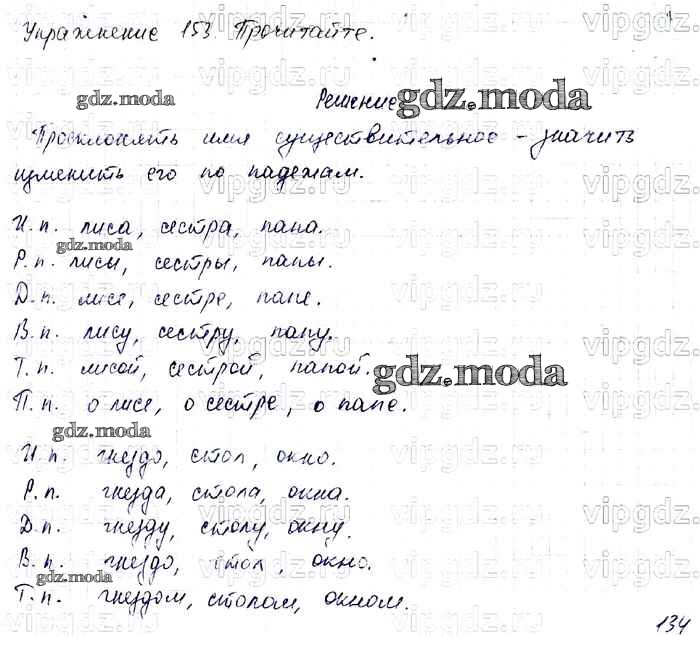 Упражнение 153. Прочитайте.
Решение
Просклонять имя существительное - значит
изменить его по падежам.
И.п. лиса, сестра, папа.
Р.п. лисы, сестры, папы.
Д.п. лисе, сестре, папе.
В.п. лису, сестру, папу.
Т.п. лисой, сестрой, папой.
П.п. о лисе, о сестре, о папе.
И.п. гнездо, стол, окно.
Р.п. гнезда, стола, окна.
Д.п. гнезду, столу, окну.
В.п. гнездо, стол, окно.
Т.п. гнездом, столом, окном.
134
gdz.moda
gdz.moda
gdz.moda
gdz.moda
gdz.moda
gdz.moda
vipgdz.ru